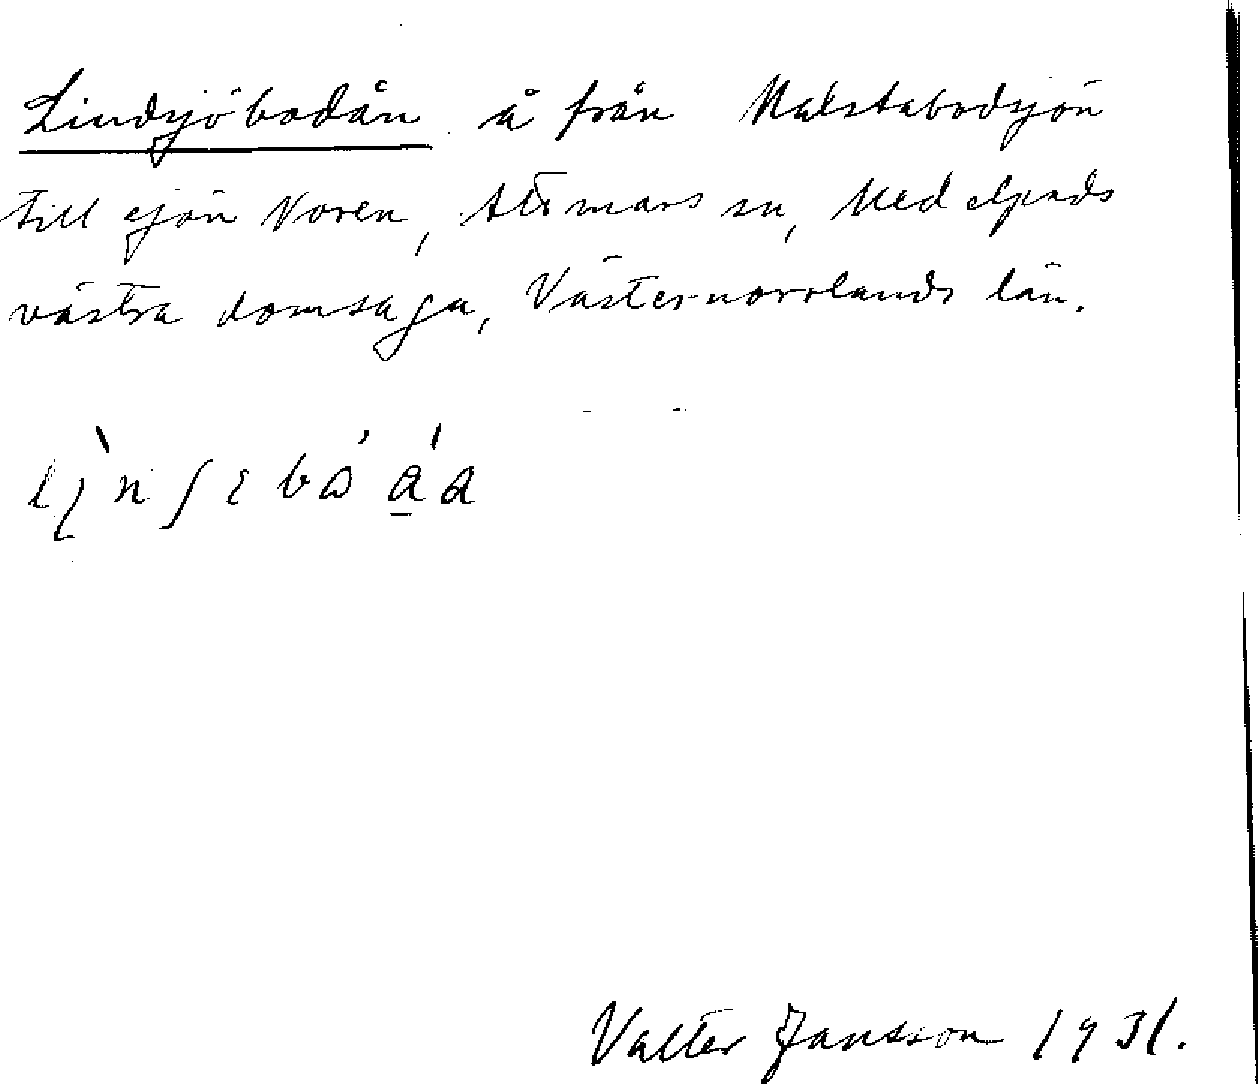 Lindsjöbodån å från Malstabodsjön
till sjön Noren, Attmars sn, Medelpads
västra domsaga, Västernorrlands län.
Valter Jansson 1931.